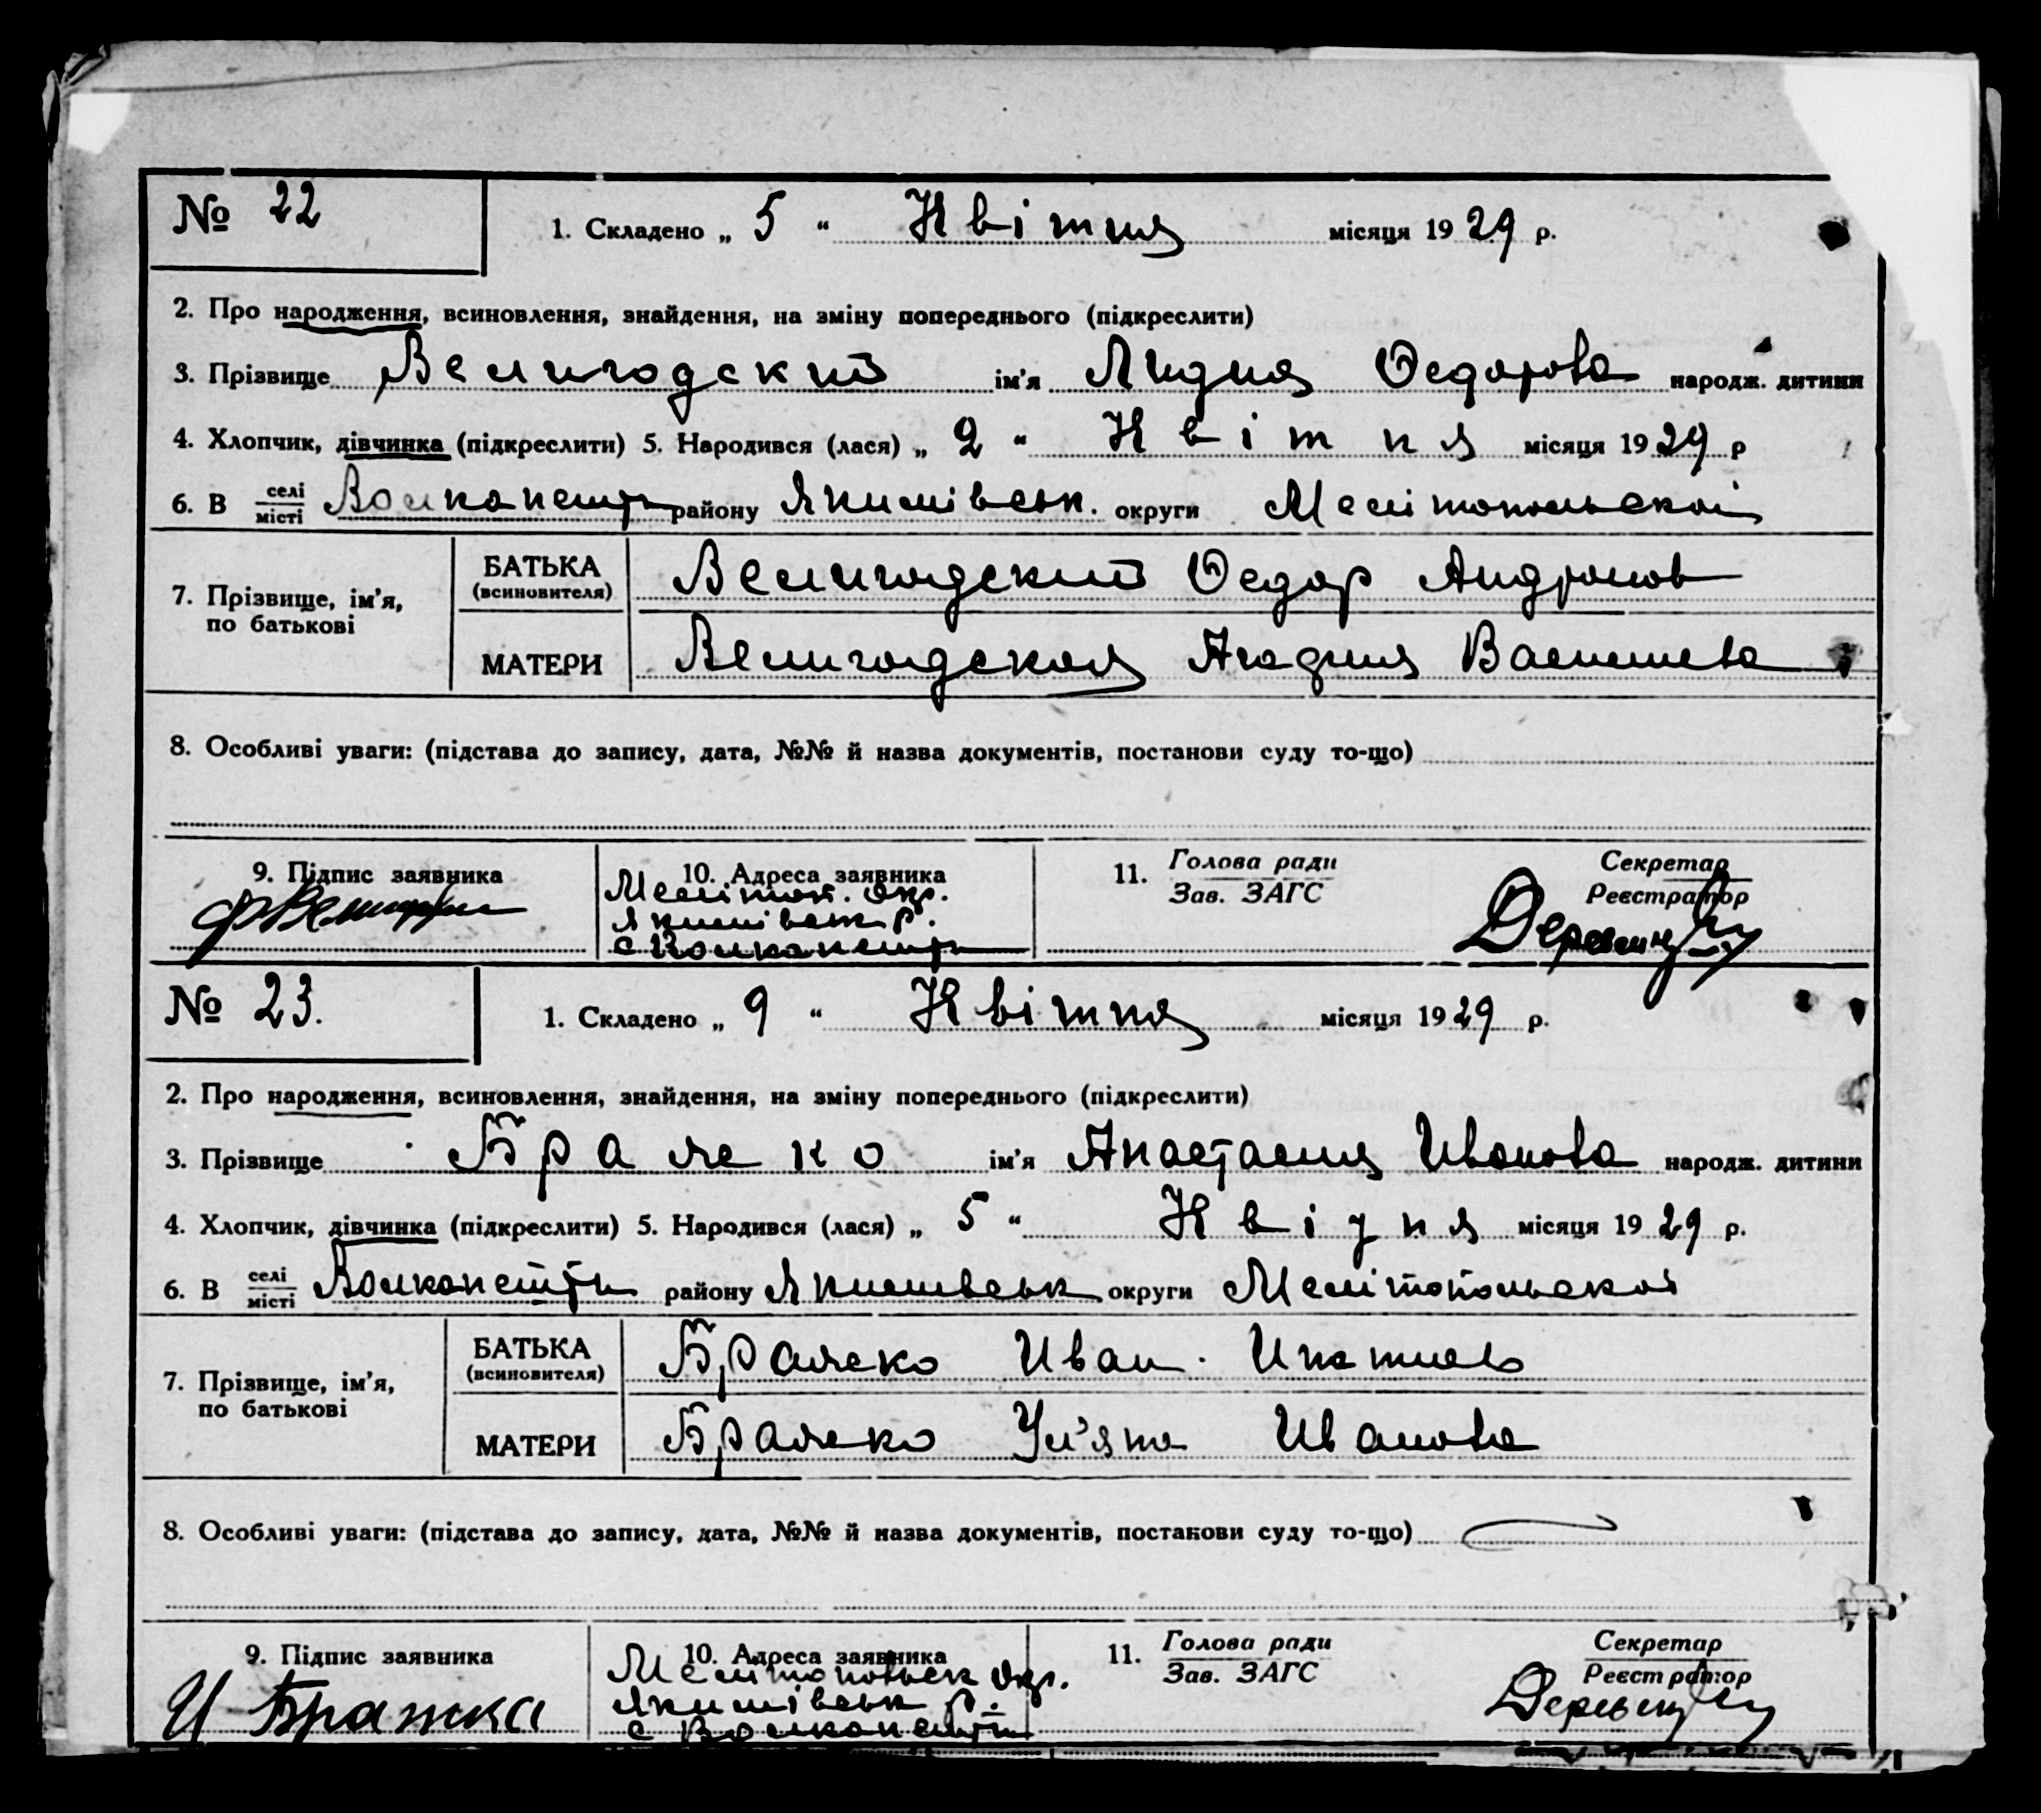 № 22
1. Складено „ 5 “ Квітня місяця 1929 р.
2. Про народження, всиновлення, знайдення, на зміну попереднього (підкреслити)
3. Прізвище Велигодский ім'я Лидия Федорова народж. дитини
4. Хлопчик, дівчинка (підкреслити) 5. Народився (лася) „ 2 “ Квітня місяця 1929 р
6. В селі місті Волканешти району Якимівськ. округи Мелітопольской
7. Прізвище, ім'я, по батькові
БАТЬКА (всиновителя) Велигодский Федор Андронов
МАТЕРИ Велигодская Агафия Васильева
8. Особливі уваги: (підстава до запису, дата, №№ й назва документів, постанови суду то-що)
9. Підпис заявника
10. Адреса заявника
Меліттоп. окр.
Якимівськ р.
с Волканешти
11. Голова ради Зав. ЗАГС
Секретар Реєстратор
№ 23.
1. Складено „ 9 “ Квітня місяця 1929 р.
2. Про народження, всиновлення, знайдення, на зміну попереднього (підкреслити)
3. Прізвище ім'я Анастасия Иванова народж. дитини
4. Хлопчик, дівчинка (підкреслити) 5. Народився (лася) „ 5 “ Квітня місяця 1929 р.
6. В селі місті Волканешти району Якимівськ округи Мелітопольской
7. Прізвище, ім'я, по батькові
БАТЬКА (всиновителя) Иван. Ипатиев
МАТЕРИ Ул'яна Иванова
8. Особливі уваги: (підстава до запису, дата, №№ й назва документів, постанови суду то-що)
9. Підпис заявника
И Бражка
10. Адреса заявника
Мелітопольск окр.
Якимівськ р.
с Волканешти
11. Голова ради Зав. ЗАГС
Секретар Реєстратор